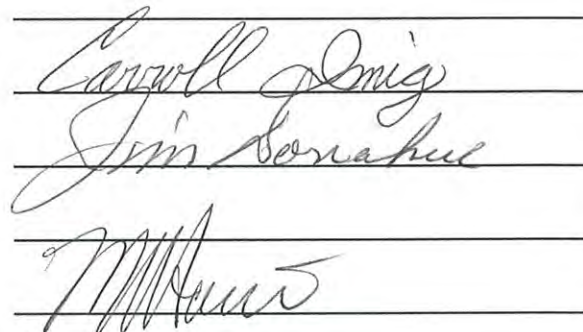 Carroll Imig
Jim Donahue